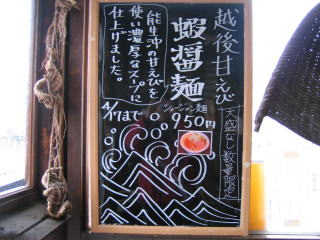 越後甘えび
蝦醤麺
シャージャン麺
950円
大盛なし 数量限定
能生沖の甘えびを
使い濃厚なスープに
仕上げました。
4/17まで